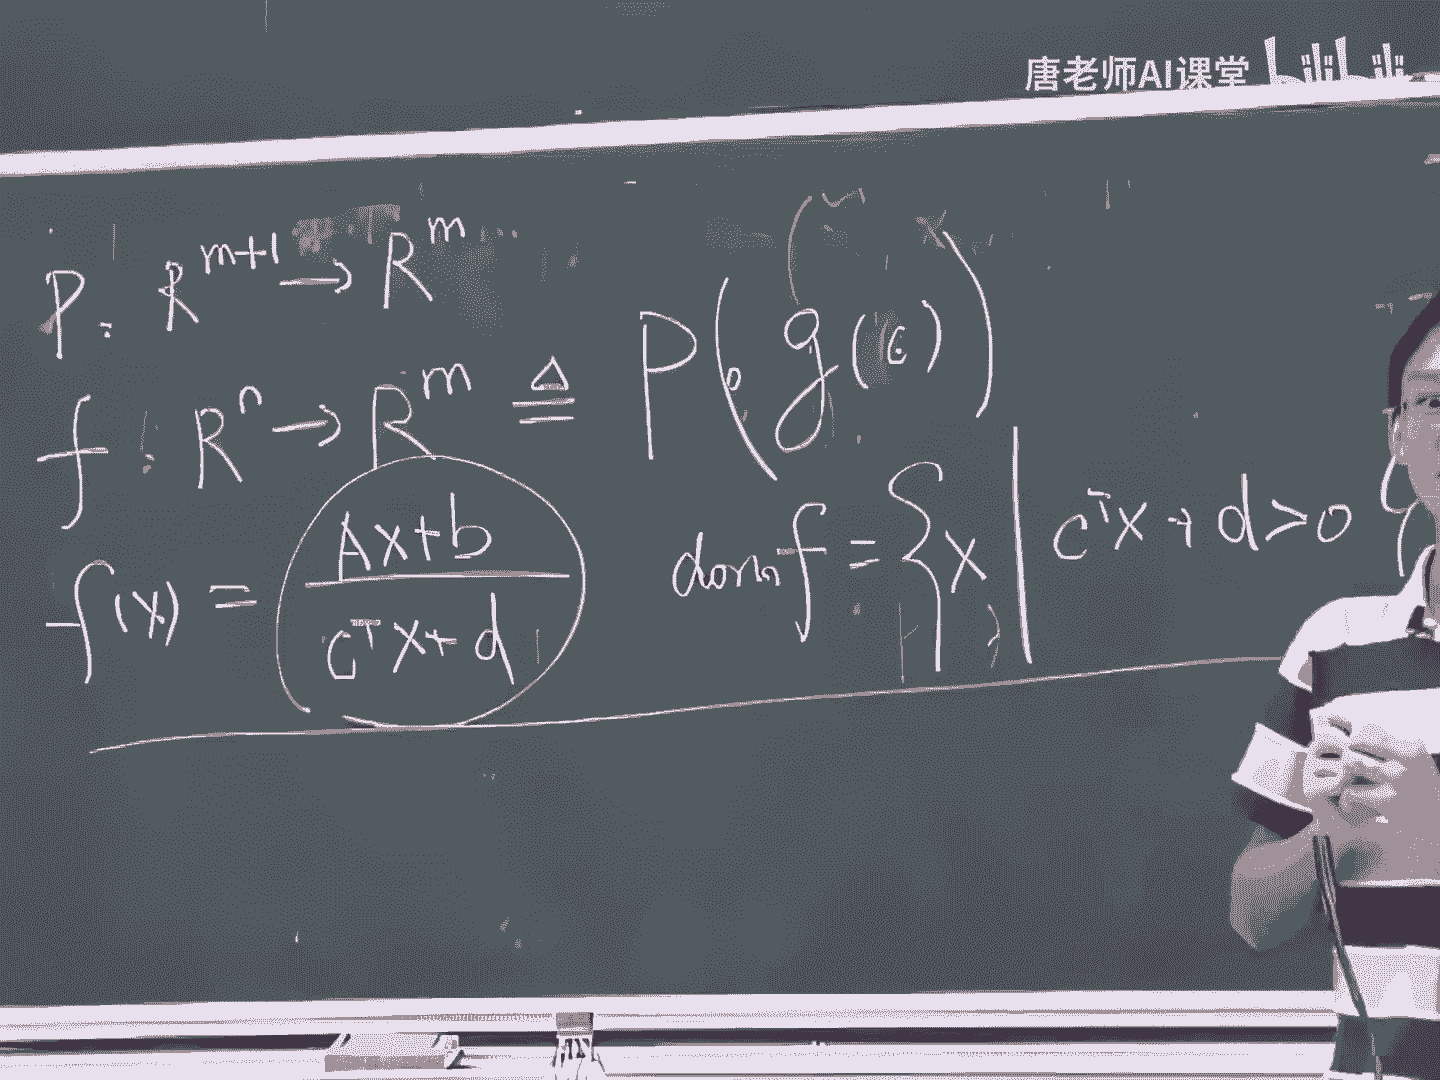 唐老师AI课堂 bilibili
P: R^{m+1} → R^m
f: R^n → R^m ≜ P(g(·))
f(x) = \frac{Ax+b}{c^T x+d} dom f = {x | c^T x + d > 0